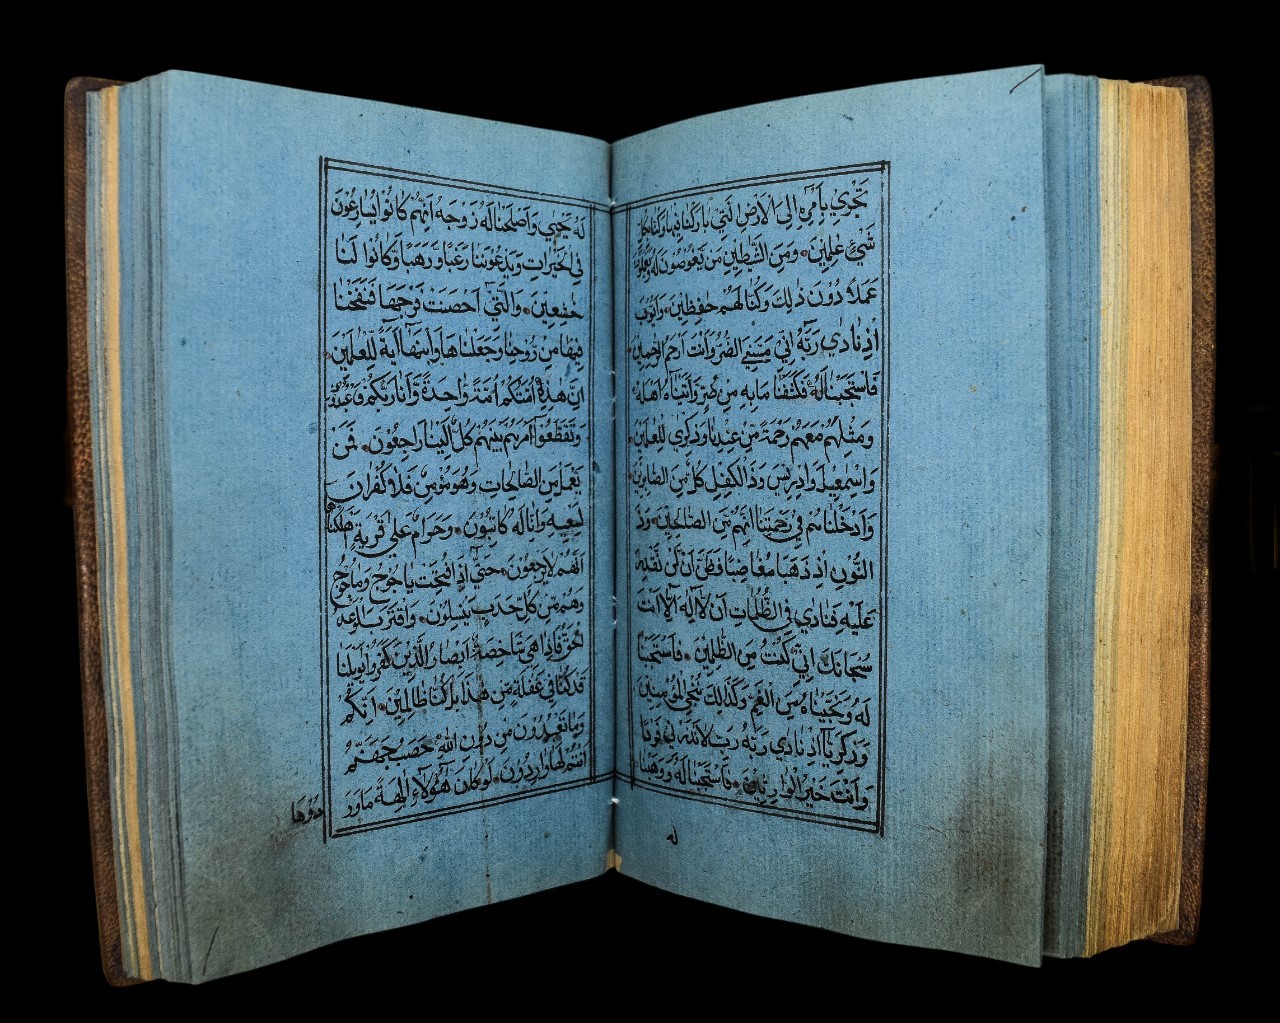 تَجْرِي بِأَمْرِهِ إِلَى الْأَرْضِ الَّتِي بَارَكْنَا فِيهَا وَكُنَّا بِكُلِّ
شَيْءٍ عَالِمِينَ وَمِنَ الشَّيَاطِينِ مَن يَغُوصُونَ لَهُ وَيَعْمَلُونَ
عَمَلًا دُونَ ذَٰلِكَ وَكُنَّا لَهُمْ حَافِظِينَ وَأَيُّوبَ
إِذْ نَادَىٰ رَبَّهُ أَنِّي مَسَّنِيَ الضُّرُّ وَأَنتَ أَرْحَمُ الرَّاحِمِينَ
فَاسْتَجَبْنَا لَهُ فَكَشَفْنَا مَا بِهِ مِن ضُرٍّ وَآتَيْنَاهُ أَهْلَهُ
وَمِثْلَهُم مَّعَهُمْ رَحْمَةً مِّنْ عِندِنَا وَذِكْرَىٰ لِلْعَٰبِدِينَ
وَإِسْمَٰعِيلَ وَإِدْرِيسَ وَذَا الْكِفْلِ كُلٌّ مِّنَ الصَّابِرِينَ
وَأَدْخَلْنَاهُمْ فِي رَحْمَتِنَا إِنَّهُم مِّنَ الصَّالِحِينَ وَذَا
النُّونِ إِذ ذَّهَبَ مُغَاضِبًا فَظَنَّ أَن لَّن نَّقْدِرَ
عَلَيْهِ فَنَادَىٰ فِي الظُّلُمَاتِ أَن لَّا إِلَٰهَ إِلَّا أَنتَ
سُبْحَانَكَ إِنِّي كُنتُ مِنَ الظَّٰلِمِينَ فَاسْتَجَبْنَا
لَهُ وَنَجَّيْنَاهُ مِنَ الْغَمِّ وَكَذَٰلِكَ نُنجِي الْمُؤْمِنِينَ
وَزَكَرِيَّا إِذْ نَادَىٰ رَبَّهُ رَبِّ لَا تَذَرْنِي فَرْدًا
وَأَنتَ خَيْرُ الْوَارِثِينَ فَاسْتَجَبْنَا لَهُ وَوَهَبْنَا
له
لَهُ يَحْيَىٰ وَأَصْلَحْنَا لَهُ زَوْجَهُ إِنَّهُمْ كَانُوا يُسَارِعُونَ
فِي الْخَيْرَاتِ وَيَدْعُونَنَا رَغَبًا وَرَهَبًا وَكَانُوا لَنَا
خَٰشِعِينَ وَالَّتِي أَحْصَنَتْ فَرْجَهَا فَنَفَخْنَا
فِيهَا مِن رُّوحِنَا وَجَعَلْنَاهَا وَابْنَهَا آيَةً لِّلْعَٰلَمِينَ
إِنَّ هَٰذِهِ أُمَّتُكُمْ أُمَّةً وَاحِدَةً وَأَنَا رَبُّكُمْ فَاعْبُدُونِ
وَتَقَطَّعُوا أَمْرَهُم بَيْنَهُمْ كُلٌّ إِلَيْنَا رَاجِعُونَ فَمَن
يَعْمَلْ مِنَ الصَّالِحَاتِ وَهُوَ مُؤْمِنٌ فَلَا كُفْرَانَ
لِسَعْيِهِ وَإِنَّا لَهُ كَاتِبُونَ وَحَرَامٌ عَلَىٰ قَرْيَةٍ أَهْلَكْنَاهَا
أَنَّهُمْ لَا يَرْجِعُونَ حَتَّىٰ إِذَا فُتِحَتْ يَاجُوجُ وَمَاجُوجُ
وَهُم مِّن كُلِّ حَدَبٍ يَنسِلُونَ وَاقْتَرَبَ الْوَعْدُ
الْحَقُّ فَإِذَا هِيَ شَاخِصَةٌ أَبْصَارُ الَّذِينَ كَفَرُوا يَا وَيْلَنَا
قَدْ كُنَّا فِي غَفْلَةٍ مِّنْ هَٰذَا بَلْ كُنَّا ظَالِمِينَ إِنَّكُمْ
وَمَا تَعْبُدُونَ مِن دُونِ اللَّهِ حَصَبُ جَهَنَّمَ
أَنتُمْ لَهَا وَارِدُونَ لَوْ كَانَ هَٰؤُلَاءِ آلِهَةً مَّا وَرَ
دُوهَا